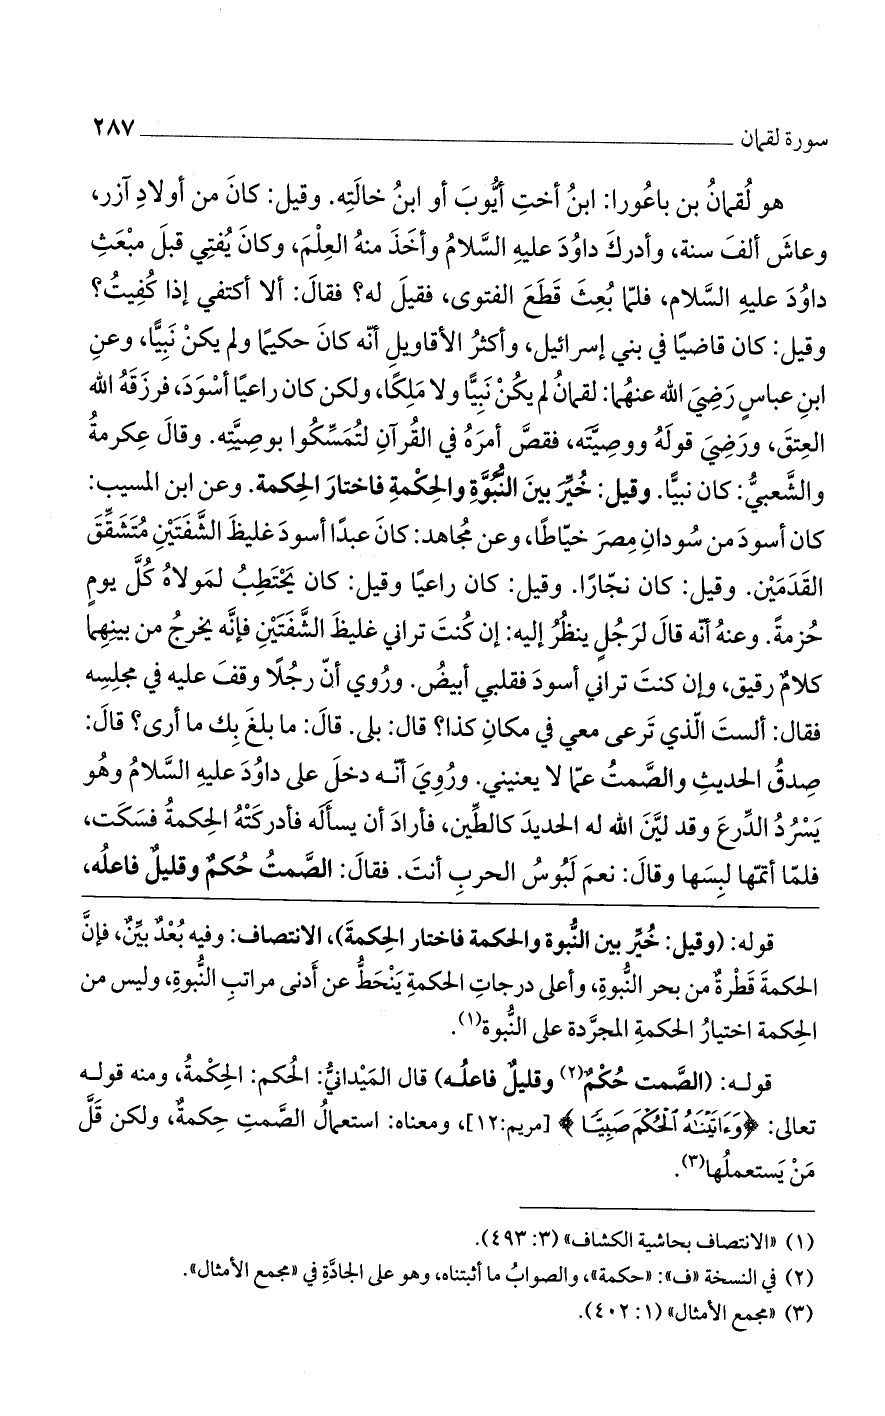 سورة لقمان ٢٨٧
هو لُقمانُ بن باعُورا: ابنُ أختِ أيُّوبَ أو ابنُ خالَتِه. وقيل: كانَ من أولادِ آزر،
وعاشَ ألفَ سنة، وأدركَ داوُدَ عليهِ السَّلامُ وأخَذَ منهُ العِلْمَ، وكانَ يُفتِي قبلَ مبْعَثِ
داوُدَ عليهِ السَّلام، فلمّا بُعِثَ قَطَعَ الفتوى، فقيلَ له؟ فقالَ: ألا أكتفي إذا كُفِيتُ؟
وقيل: كان قاضيًا في بني إسرائيل، وأكثرُ الأقاويلِ أنّه كانَ حكيمًا ولم يكنْ نَبِيًّا، وعنِ
ابنِ عباسٍ رَضِيَ الله عنهُما: لقمانُ لم يكُنْ نَبِيًّا ولا مَلِكًا، ولكن كان راعيًا أسْوَدَ، فرزَقَهُ الله
العِتقَ، ورَضِيَ قولَهُ ووصِيَّتَه، فقصَّ أمرَهُ في القُرآنِ لتُمَسِّكُوا بوصِيَّتِه. وقالَ عِكرمةُ
والشَّعبيُّ: كان نبيًّا. وقيل: خُيِّرَ بينَ النُّبُوَّةِ والحِكْمةِ فاختارَ الحِكمة. وعن ابن المسيب:
كان أسودَ من سُودانِ مِصرَ خيّاطًا، وعن مُجاهد: كانَ عبدًا أسودَ غليظَ الشَّفَتَيْنِ مُتَشَقِّقَ
القَدَمَيْن. وقيل: كان نجّارًا. وقيل: كان راعيًا وقيل: كان يَحْتَطِبُ لمَولاهُ كُلَّ يومٍ
حُزمةً. وعنهُ أنّه قالَ لرَجُلٍ ينظُرُ إليه: إن كُنتَ تراني غليظَ الشَّفَتَيْنِ فإنَّه يخرجُ من بينِهِما
كلامٌ رقيق، وإن كنتَ تراني أسودَ فقلبي أبيضُ. ورُوي أنّ رجُلًا وقفَ عليه في مجلِسِه
فقال: ألستَ الّذي تَرعى معي في مكانِ كذا؟ قال: بلى. قالَ: ما بلغَ بِك ما أرى؟ قالَ:
صِدقُ الحديثِ والصَّمتُ عمّا لا يعنيني. ورُوِيَ أنّه دخلَ على داوُدَ عليهِ السَّلامُ وهُو
يَسْرُدُ الدِّرعَ وقد ليَّنَ الله له الحديدَ كالطِّين، فأرادَ أن يسألَه فأدركَتْهُ الحِكمةُ فسَكَت،
فلمّا أتمّها لبِسَها وقالَ: نعمَ لَبُوسُ الحربِ أنتَ. فقالَ: الصَّمتُ حُكمٌ وقليلٌ فاعلُه،
قوله: (وقيل: خُيِّر بين النُّبوة والحكمة فاختار الحِكمةَ)، الانتصاف: وفيه بُعْدٌ بيِّنٌ، فإنَّ
الحكمةَ قَطْرةٌ من بحر النُّبوةِ، وأعلى درجاتِ الحكمةِ يَنْحَطُّ عن أَدنى مراتبِ النُّبوةِ، وليس من
الحِكمة اختيارُ الحكمةِ المجرَّدة على النُّبوة(١).
قوله: (الصَّمت حُكْمٌ(٢) وقليلٌ فاعلُه) قال المَيْدانيُّ: الحُكم: الحِكْمةُ، ومنه قوله
تعالى: ﴿وَءَاتَيْنَٰهُ ٱلْحُكْمَ صَبِيًّا﴾ [مريم:١٢]، ومعناه: استعمالُ الصَّمتِ حِكمةٌ، ولكن قَلَّ
مَنْ يَستعملُها(٣).
(١) «الانتصاف بحاشية الكشاف» (٣: ٤٩٣).
(٢) في النسخة «ف»: «حكمة»، والصوابُ ما أثبتناه، وهو على الجادَّةِ في «مجمع الأمثال».
(٣) «مجمع الأمثال» (١: ٤٠٢).